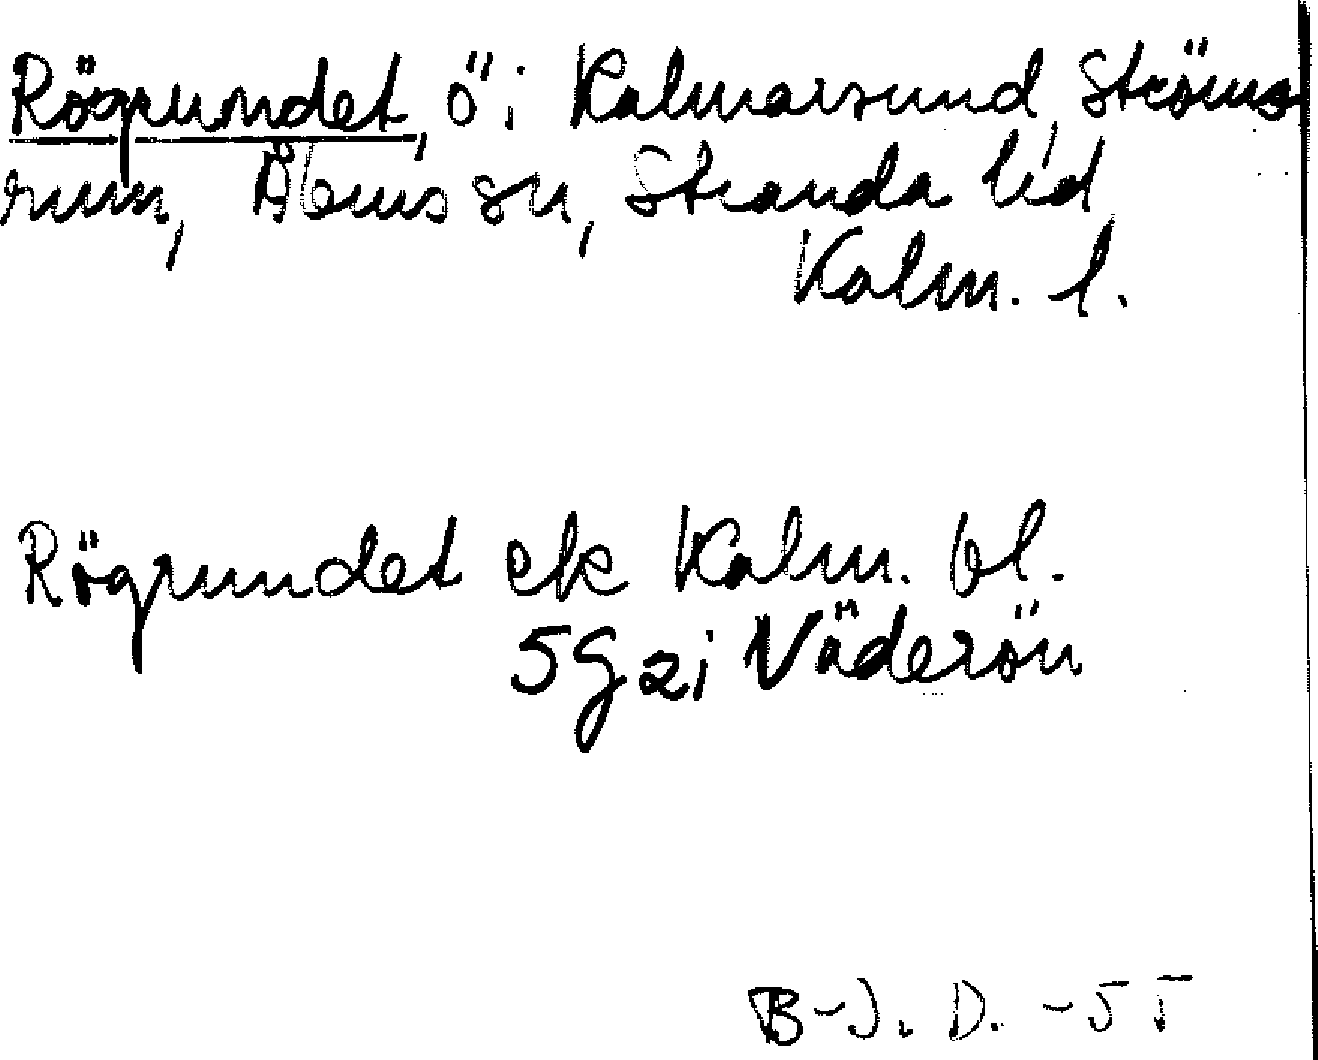 Rögrundet, ö i Kalmarsund, Ströms
rum, Ålems sn, Stranda hd,
Kalm. l.
Rögrundet ek Kalm. bl.
5G2i Väderön
B-J. D. -55